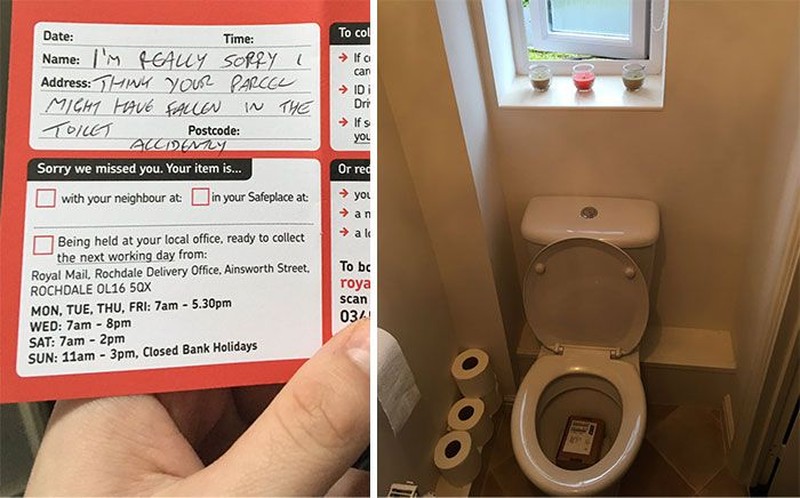 Date: Time:
Name: I'M REALLY SORRY I
Address: THINK YOUR PARCEL
MIGHT HAVE FALLEN IN THE
TOILET Postcode:
ACCIDENTLY
Sorry we missed you. Your item is...
with your neighbour at: in your Safeplace at:
Being held at your local office, ready to collect
the next working day from:
Royal Mail, Rochdale Delivery Office, Ainsworth Street,
ROCHDALE OL16 5QX
MON, TUE, THU, FRI: 7am - 5.30pm
WED: 7am - 8pm
SAT: 7am - 2pm
SUN: 11am - 3pm, Closed Bank Holidays
To col
→ If c
car
→ ID i
Dri
→ If s
you
Or rec
→ you
→ a n
→ a l
To bo
roya
scan
034